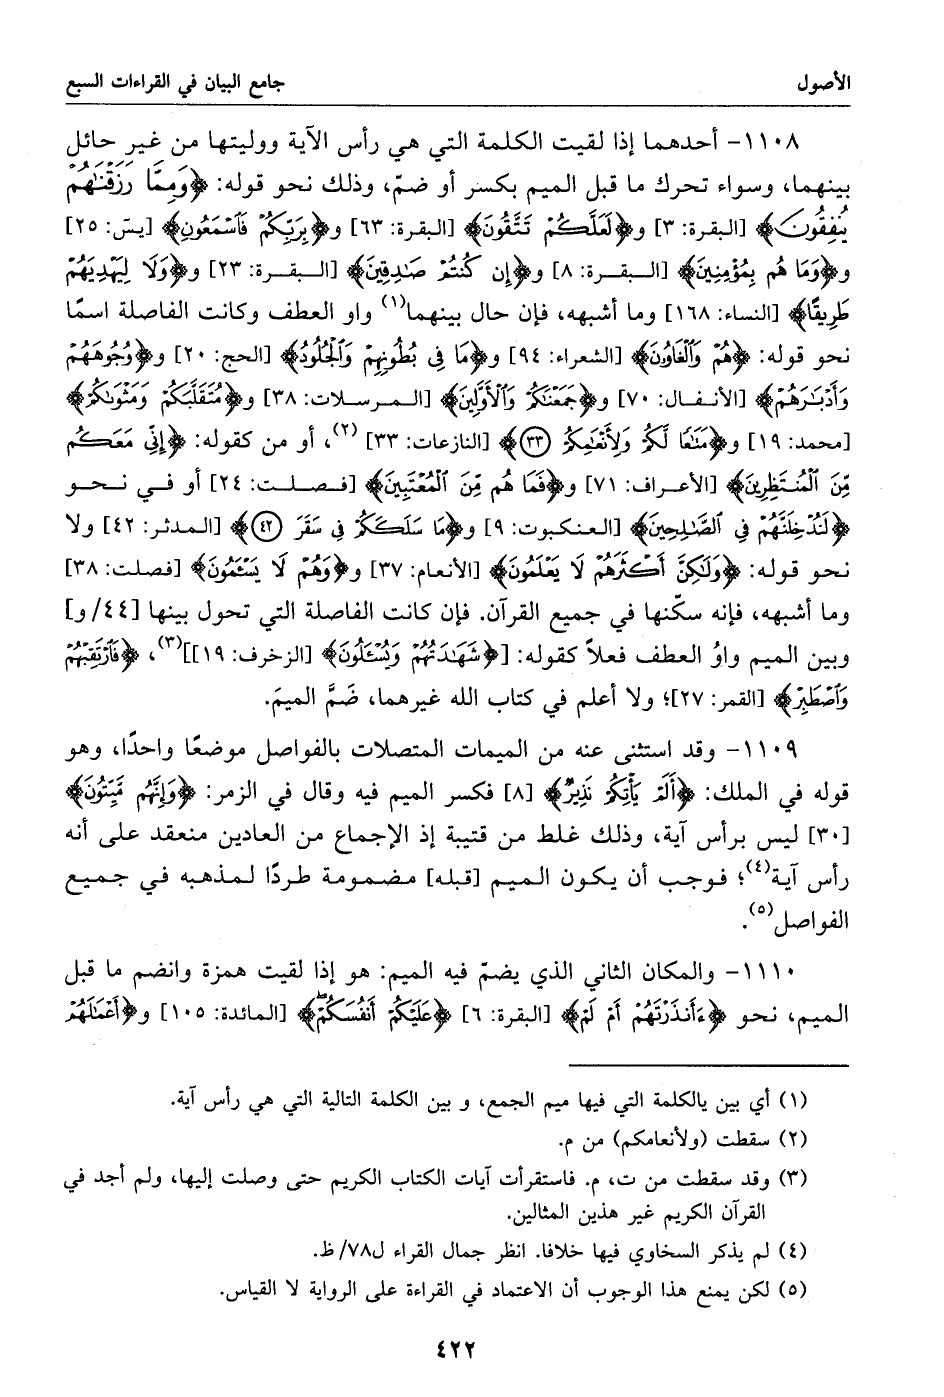 الأصول
جامع البيان في القراءات السبع
١١٠٨- أحدهما إذا لقيت الكلمة التي هي رأس الآية ووليتها من غير حائل
بينهما، وسواء تحرك ما قبل الميم بكسر أو ضمّ، وذلك نحو قوله: ﴿وَمِمَّا رَزَقْنَٰهُمْ
يُنفِقُونَ﴾ [البقرة: ٣] و﴿لَعَلَّكُمْ تَتَّقُونَ﴾ [البقرة: ٦٣] و﴿بِرَبِّكُمْ فَٱسْمَعُونِ﴾ [يسَ: ٢٥]
و﴿وَمَا هُم بِمُؤْمِنِينَ﴾ [البقرة: ٨] و﴿إِن كُنتُمْ صَٰدِقِينَ﴾ [البقرة: ٢٣] و﴿وَلَا لِيَهْدِيَهُمْ
طَرِيقًا﴾ [النساء: ١٦٨] وما أشبهه، فإن حال بينهما(١) واو العطف وكانت الفاصلة اسمًا
نحو قوله: ﴿هُمْ وَٱلْغَاوُۥنَ﴾ [الشعراء: ٩٤] و﴿مَا فِى بُطُونِهِمْ وَٱلْجُلُودُ﴾ [الحج: ٢٠] و﴿وُجُوهَهُمْ
وَأَدْبَٰرَهُمْ﴾ [الأنفال: ٧٠] و﴿جَمَعْنَٰكُمْ وَٱلْأَوَّلِينَ﴾ [المرسلات: ٣٨] و﴿مُتَقَلَّبَكُمْ وَمَثْوَىٰكُمْ﴾
[محمد: ١٩] و﴿مَتَٰعًا لَّكُمْ وَلِأَنْعَٰمِكُمْ ٣٣﴾ [النازعات: ٣٣](٢)، أو من كقوله: ﴿إِنِّى مَعَكُم
مِّنَ ٱلْمُنتَظِرِينَ﴾ [الأعراف: ٧١] و﴿فَمَا هُم مِّنَ ٱلْمُعْتَبِينَ﴾ [فصلت: ٢٤] أو في نحو
﴿لَنُدْخِلَنَّهُمْ فِى ٱلصَّٰلِحِينَ﴾ [العنكبوت: ٩] و﴿مَا سَلَكَكُمْ فِى سَقَرَ ٤٢﴾ [المدثر: ٤٢] ولا
نحو قوله: ﴿وَلَٰكِنَّ أَكْثَرَهُمْ لَا يَعْلَمُونَ﴾ [الأنعام: ٣٧] و﴿وَهُمْ لَا يَسْـَٔمُونَ﴾ [فصلت: ٣٨]
وما أشبهه، فإنه سكّنها في جميع القرآن. فإن كانت الفاصلة التي تحول بينها [٤٤/و]
وبين الميم واوُ العطف فعلاً كقوله: [﴿شَهَٰدَتُهُمْ وَيُسْـَٔلُونَ﴾ [الزخرف: ١٩]](٣)، ﴿فَٱرْتَقِبْهُمْ
وَٱصْطَبِرْ﴾ [القمر: ٢٧]؛ ولا أعلم في كتاب الله غيرهما، ضَمَّ الميمَ.
١١٠٩- وقد استثنى عنه من الميمات المتصلات بالفواصل موضعًا واحدًا، وهو
قوله في الملك: ﴿أَلَمْ يَأْتِكُمْ نَذِيرٌ﴾ [٨] فكسر الميم فيه وقال في الزمر: ﴿وَإِنَّهُم مَّيِّتُونَ﴾
[٣٠] ليس برأس آية، وذلك غلط من قتيبة إذ الإجماع من العادين منعقد على أنه
رأس آية(٤)؛ فوجب أن يكون الميم [قبله] مضمومة طردًا لمذهبه في جميع
الفواصل(٥).
١١١٠- والمكان الثاني الذي يضمّ فيه الميم: هو إذا لقيت همزة وانضم ما قبل
الميم، نحو ﴿ءَأَنذَرْتَهُمْ أَمْ لَمْ﴾ [البقرة: ٦] ﴿عَلَيْكُمْ أَنفُسَكُمْ﴾ [المائدة: ١٠٥] و﴿أَعْمَٰلَهُمْ
(١) أي بين يالكلمة التي فيها ميم الجمع، و بين الكلمة التالية التي هي رأس آية.
(٢) سقطت (ولأنعامكم) من م.
(٣) وقد سقطت من ت، م. فاستقرأت آيات الكتاب الكريم حتى وصلت إليها، ولم أجد في
القرآن الكريم غير هذين المثالين.
(٤) لم يذكر السخاوي فيها خلافا. انظر جمال القراء ل٧٨/ظ.
(٥) لكن يمنع هذا الوجوب أن الاعتماد في القراءة على الرواية لا القياس.
٤٢٢